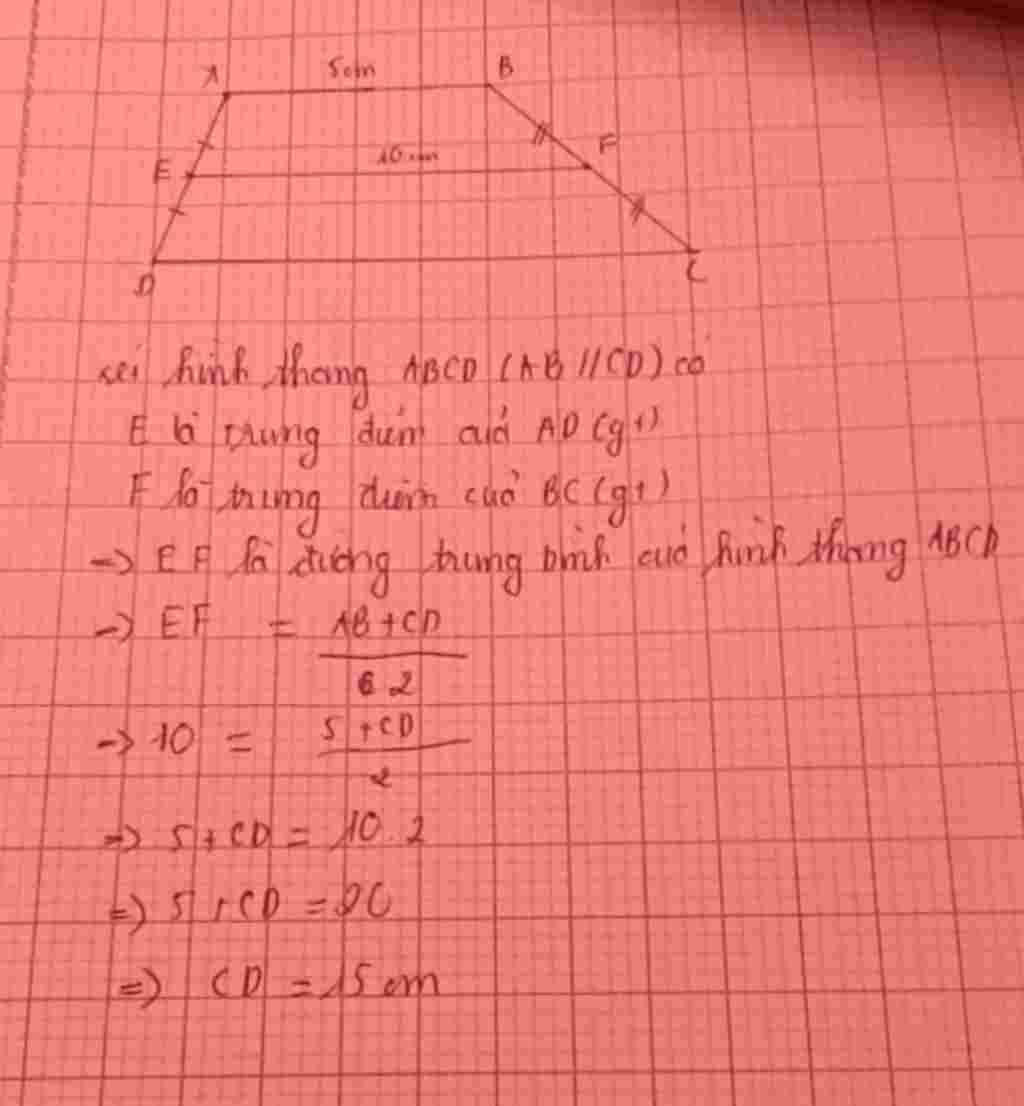 A 5cm B
E 10 cm F
D C
xét hình thang ABCD (AB // CD) có
E là trung điểm của AD (gt)
F là trung điểm của BC (gt)
-> EF là đường trung bình của hình thang ABCD
-> EF = AB + CD
2
-> 10 = 5 + CD
2
=> 5 + CD = 10 . 2
=> 5 + CD = 20
=> CD = 15 cm